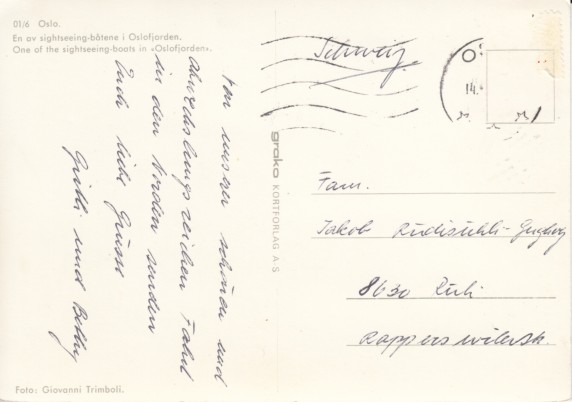 01/6 Oslo.
En av sightseeing-båtene i Oslofjorden.
One of the sightseeing-boats in «Oslofjorden».
Von unsrer schönen und
abwechslungsreichen Fahrt
in den Norden senden
Euch liebe Grüsse
und Betty
Schweiz
O
14.
grako KORTFORLAG A-S
Fam.
Jakob
8630 Rüti
Rapperswilerstr.
Foto: Giovanni Trimboli.